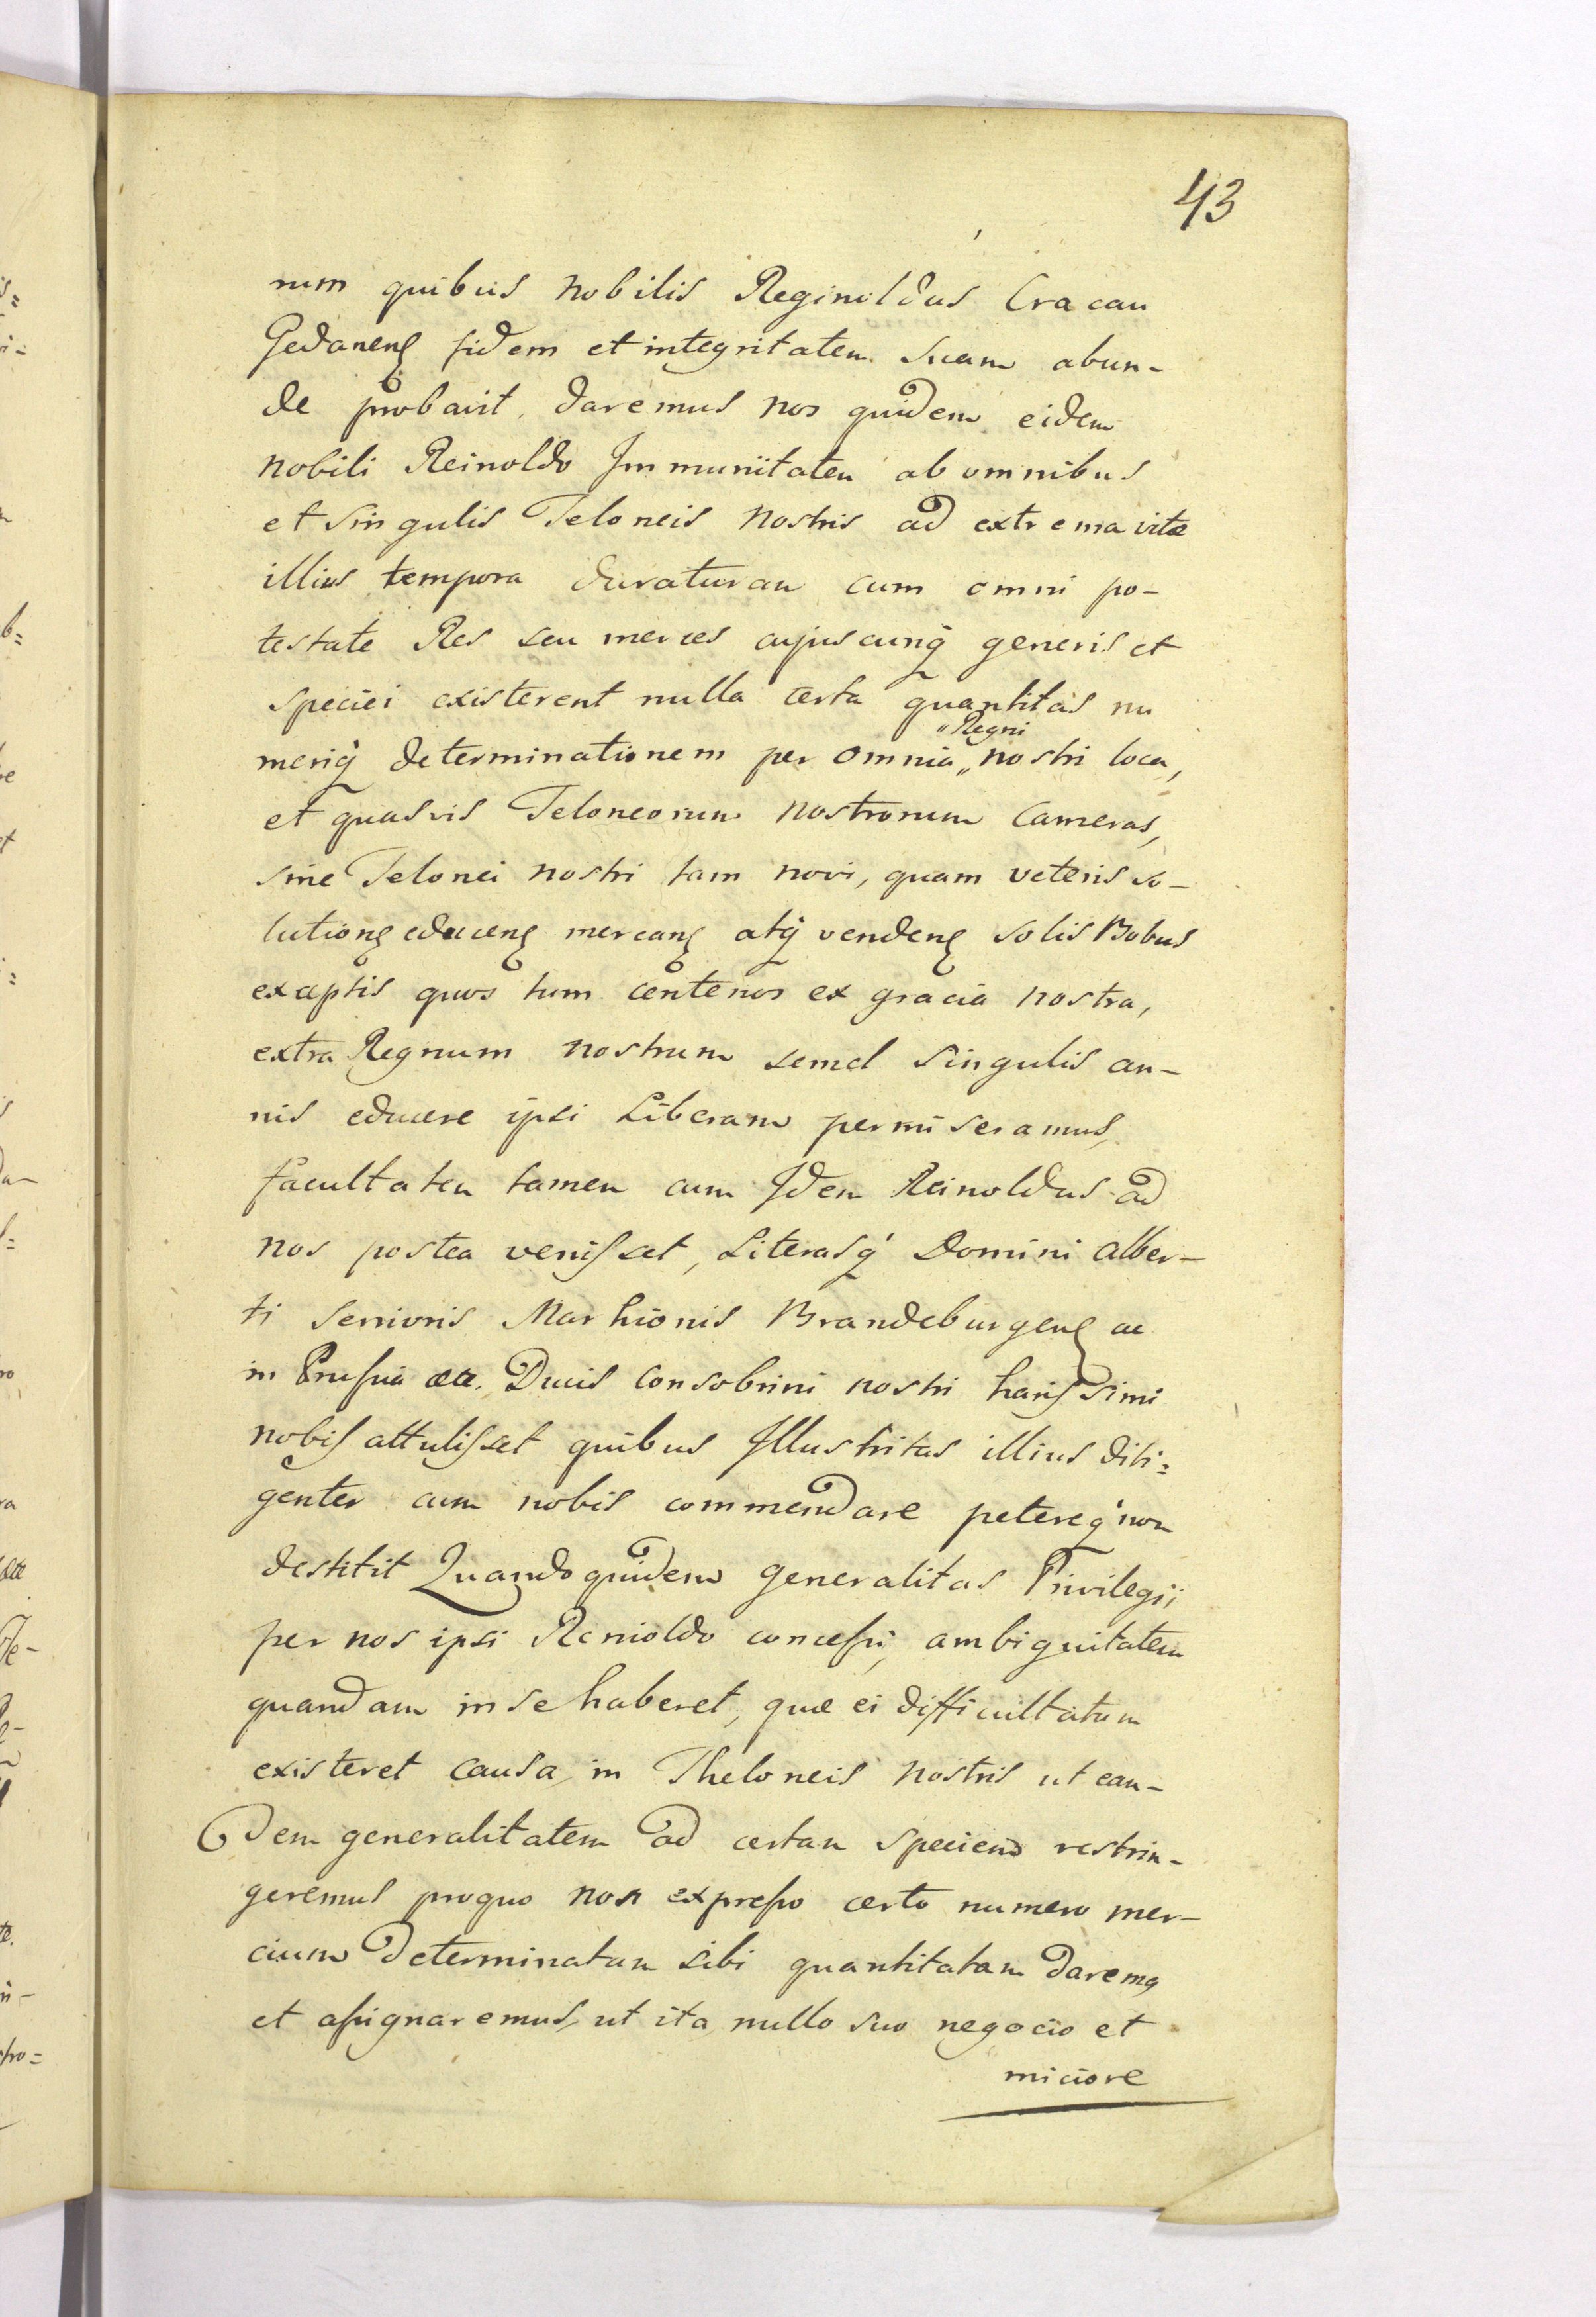 43
rum quibus nobilis Reginoldus Cracau
Gedanenß fidem et integritatem suam abun-
de probavit, daremus nos quidem eidem
nobili Reinoldo Immunitatem ab omnibus
et singulis Teloneis nostris ad extrema vitæ
illius tempora duraturam cum omni po-
testate Res seu merces cujuscunq́ generis et
speciei existerent nulla certa quantitas nu
meriq́ determinationem per omnia „Regni nostri loca,
et quasvis Teloneorum nostrorum Cameras,
sine Telonei nostri tam novi, quam veteris so-
lutionȩ educenȩ mercanȩ atq́ vendenȩ solis Bobus
exceptis quos tum centenos ex gracia nostra,
extra Regnum nostrum semel singulis an-
nis educere ipsi Liberam permiseramus,
facultatem tamen cum Idem Reinoldus ad
nos postea venisset, Literasq́ Domini Alber-
ti senioris Marhionis Brandeburgenȩ ac
in Prussia etc. Ducis consobrini nostri harissimi
nobis attulisset quibus Illustritas illius dili=
genter cum nobis commendare petereq́ non
destitit Quandoquidem generalitas Privilegii
per nos ipsi Renioldo concessi, ambiguitatem
quandam in se haberet, quæ ei difficultatum
existeret causa, in Theloneis nostris ut ean-
dem generalitatem ad certam speciem restrin-
geremus proquo non expresso certo numero mer-
cium determinatam sibi quantitatam daremq
et assignaremus, ut ita nullo suo negocio et
miciore